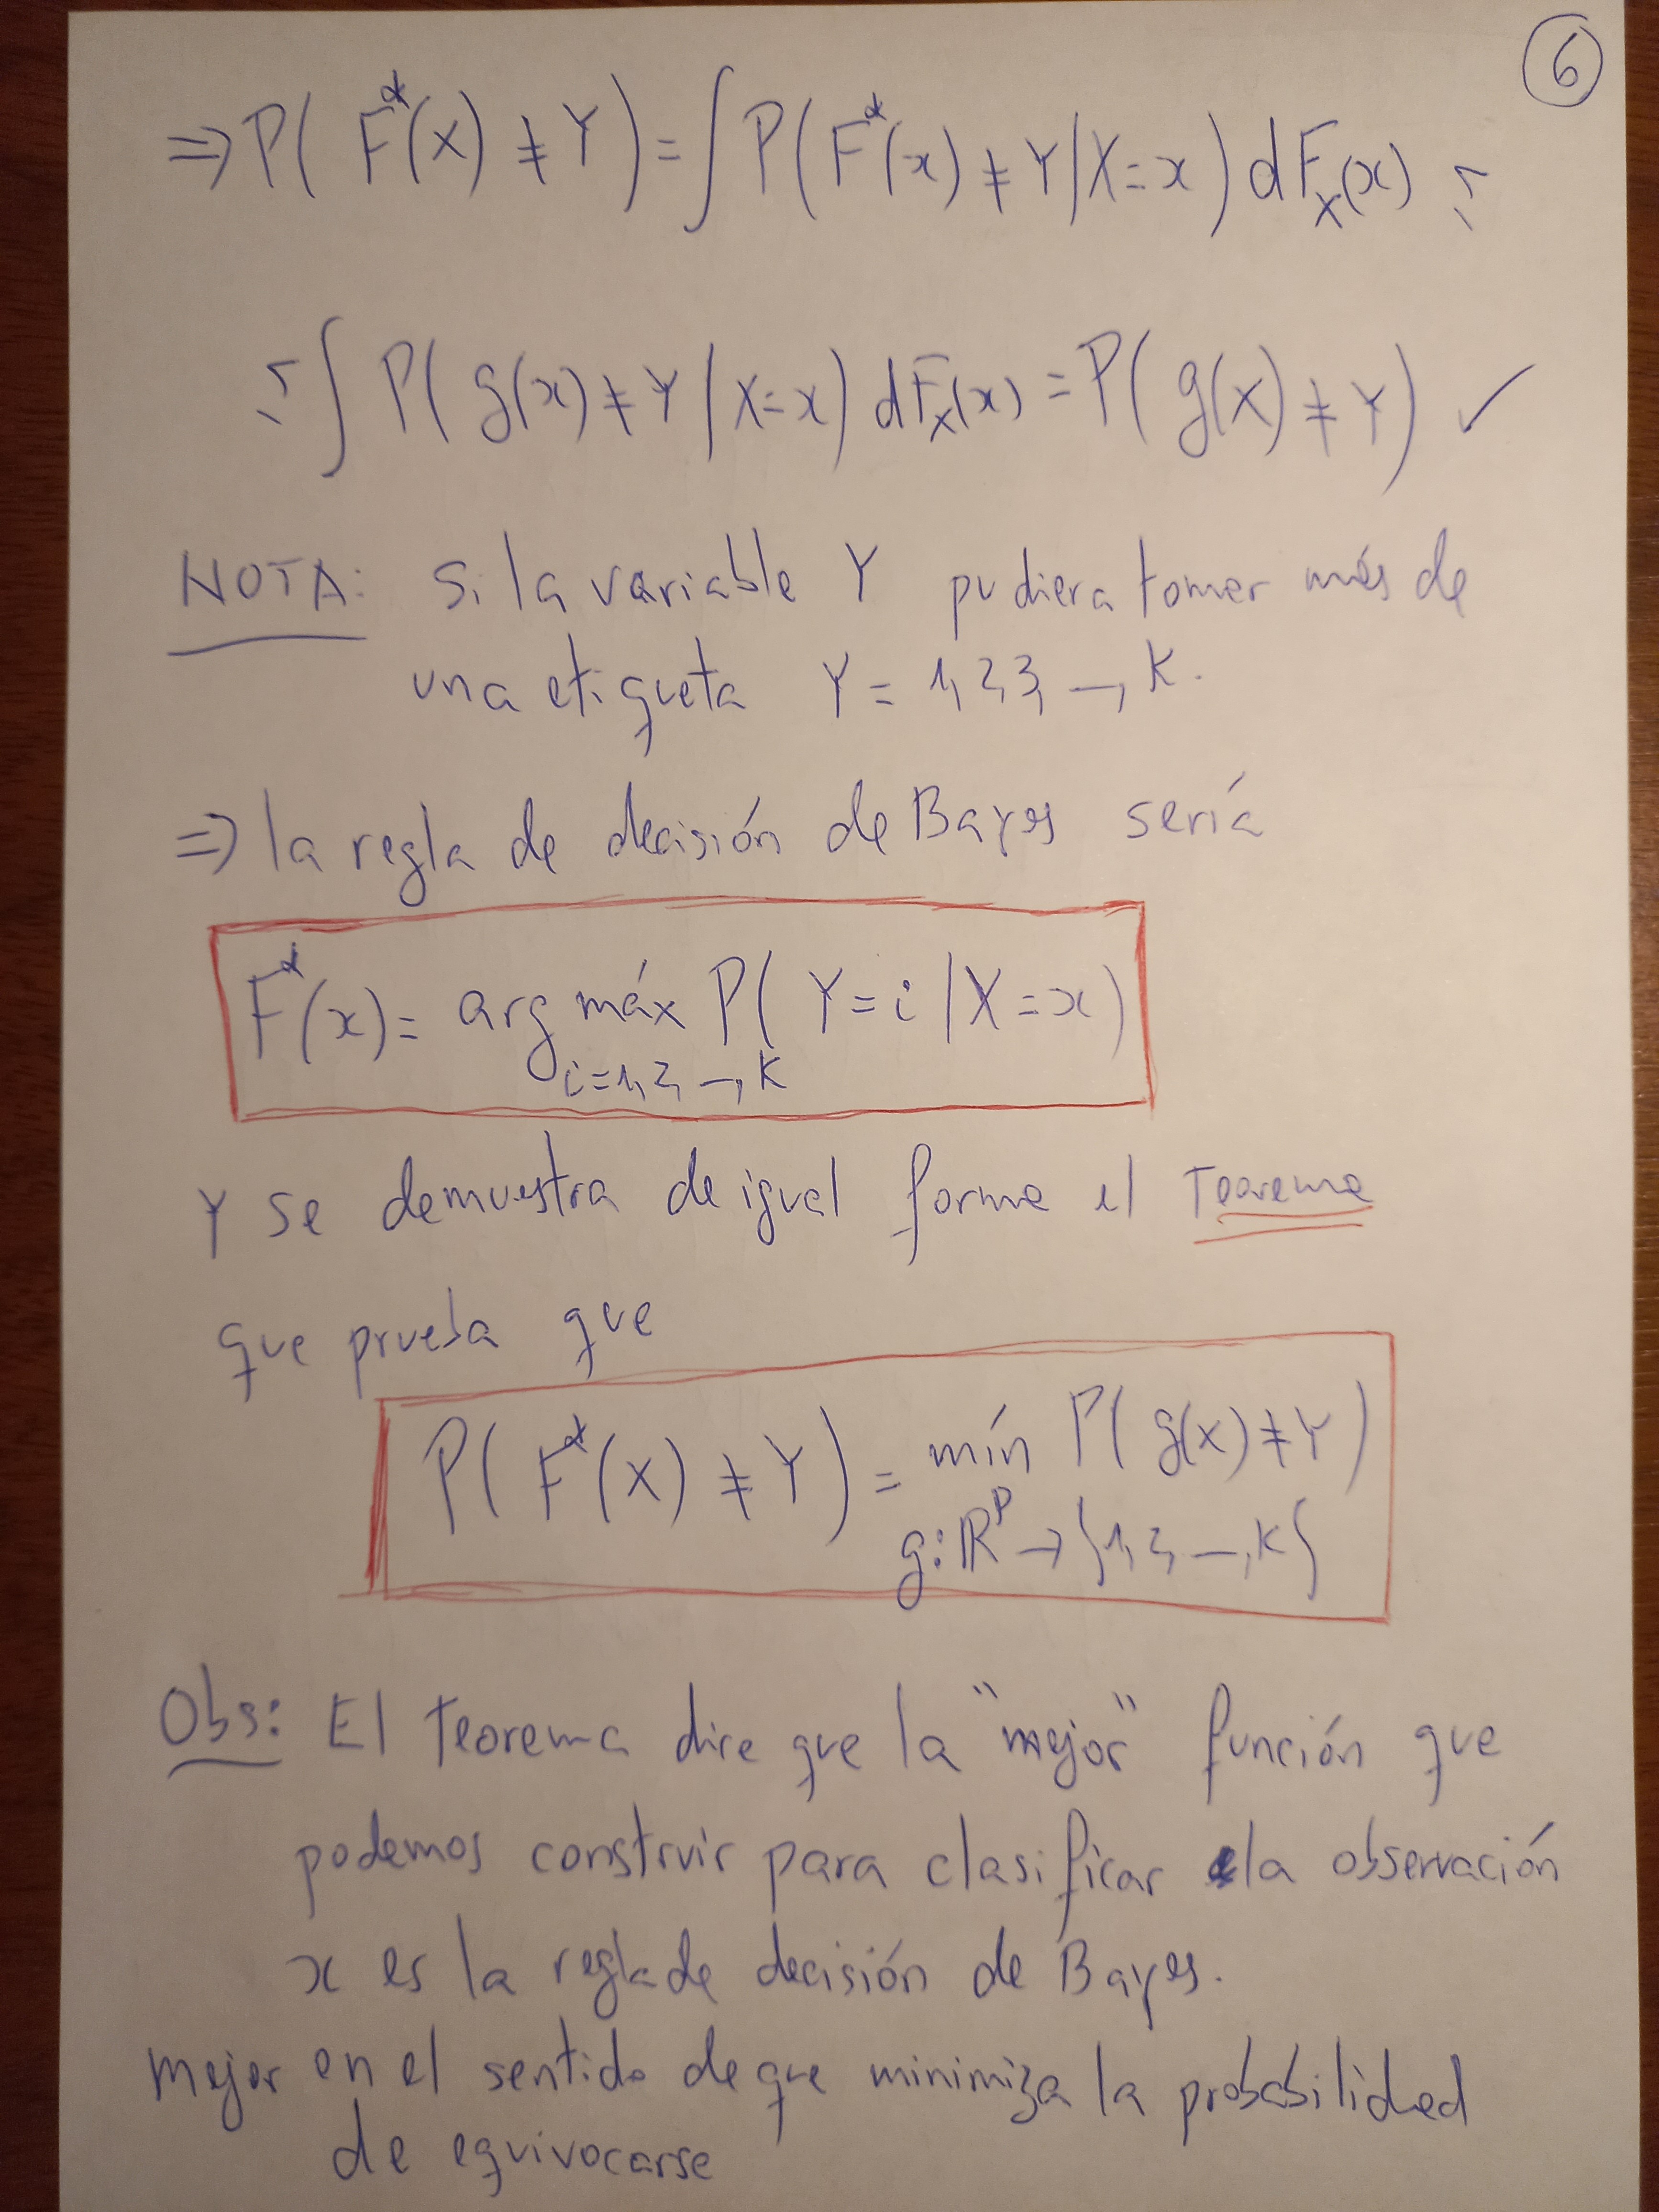 6
⇒ P( F*(X) ≠ Y ) = ∫ P( F*(x) ≠ Y / X=x ) dF_X(x) ≤
≤ ∫ P( g(x) ≠ Y / X=x ) dF_X(x) = P( g(X) ≠ Y ) ✓
NOTA: Si la variable Y pudiera tomar más de
una etiqueta Y = 1, 2, 3, —, K.
⇒ la regla de decisión de Bayes sería
F*(x) = arg máx P( Y=i / X=x )
i=1, 2, —, K
Y se demuestra de igual forma el Teorema
que prueba que
P( F*(X) ≠ Y ) = mín P( g(X) ≠ Y )
g: ℝ^p → {1, 2, —, K}
Obs: El Teorema dice que la "mejor" función que
podemos construir para clasificar la observación
x es la regla de decisión de Bayes.
mejor en el sentido de que minimiza la probabilidad
de equivocarse